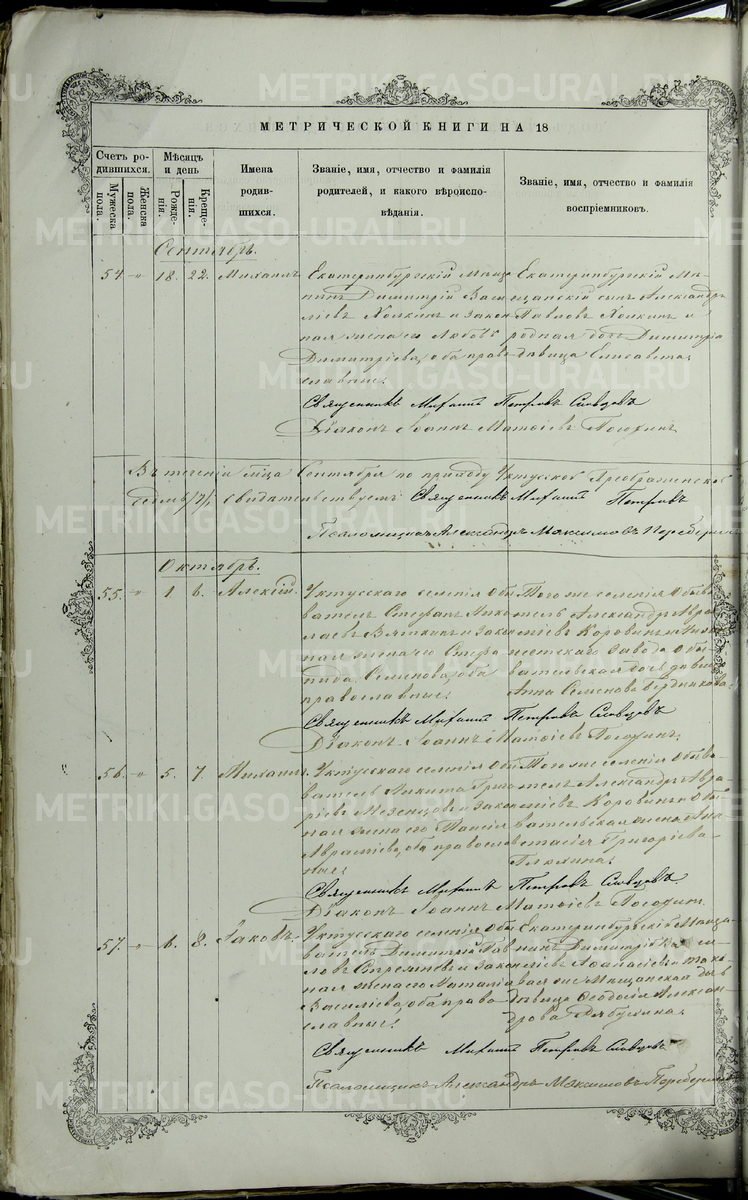 МЕТРИЧЕСКОЙ КНИГИ НА 18
Счетъ ро-
дившихся.
Мужеска
пола.
Женска
пола.
Мѣсяцъ
и день
Рожде-
нія.
Креще-
нія.
Имена
родив-
шихся.
Званіе, имя, отчество и фамилія
родителей, и какого вѣроиспо-
вѣданія.
Званіе, имя, отчество и фамилія
воспріемниковъ.
Сентябрь.
54 " 18. 22. Михаилъ
Екатеринбургскій Мѣща-
нинъ Димитрій Васи-
ліевъ и закон-
ная жена его Любовь
Димитріева, оба право-
славные;
Екатеринбургскій Мѣ-
щанскій сынъ Александръ
Павловъ и
родная дочь Димитрія
дѣвица Елисавета;
Священникъ Михаилъ Петровъ Словцовъ
Діаконъ Іоаннъ Матѳіевъ
Въ теченіи м-ца Сентября по приходу Уктусской Преображенской
свидѣтельствуемъ: Священникъ Михаилъ Петровъ
Псаломщикъ Александръ Максимовъ
Октябрь.
55. " 1 6. Алексій.
Уктусскаго селенія Обы-
ватель Стефанъ Нико-
лаевъ Вяткинъ и закон-
ная жена его Стефа-
нида Семенова, оба
православные;
Того же селенія Обыва-
тель Александръ Авра-
міевъ Коровинъ и Ниж-
неисетскаго Завода Обы-
вательская дочь дѣвица
Анна Семенова Бердникова;
Священникъ Михаилъ Петровъ Словцовъ
Діаконъ Іоаннъ Матѳіевъ
56. " 5. 7. Михаилъ.
Уктусскаго селенія Обы-
ватель Никита Григо-
ріевъ Мезенцовъ и закон-
ная жена его Таисія
Авраміева, оба православ-
ные;
Того же селенія Обыва-
тель Александръ Авра-
міевъ Коровинъ и Обы-
вательская жена Ана-
стасія Григоріева
Священникъ Михаилъ Петровъ Словцовъ.
Діаконъ Іоаннъ Матѳіевъ
57. " 6. 8. Іаковъ.
Уктусскаго селенія Обы-
ватель Димитрій Пав-
ловъ и закон-
ная жена его Наталія
Василіева, оба право-
славные;
Екатеринбургскій Мѣща-
нинъ Димитрій
и тако-
вая же Мѣщанская дочь
дѣвица Ѳеодосія Алексан-
дрова
Священникъ Михаилъ Петровъ Словцовъ
Псаломщикъ Александръ Максимовъ
METRIKI.GASO-URAL.RU